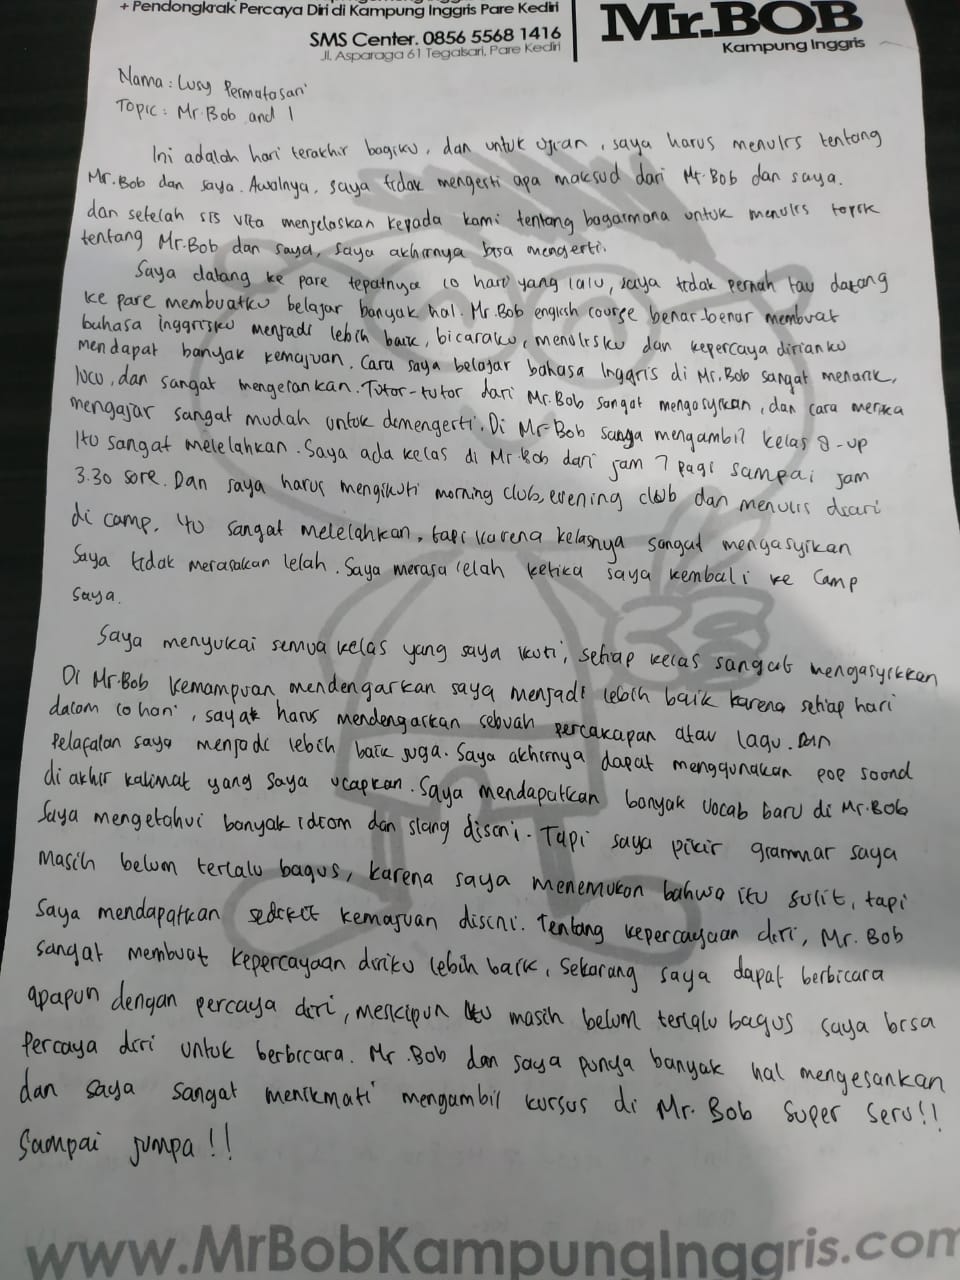 + Pendongkrak Percaya Diri di Kampung Inggris Pare Kediri
SMS Center. 0856 5568 1416
Jl. Asparaga 61 Tegalsari, Pare Kediri
Mr.BOB
Kampung Inggris
Nama : Lusy Permatasari
Topic : Mr.Bob and I
Ini adalah hari terakhir bagiku, dan untuk ujian, saya harus menulis tentang
Mr.Bob dan saya. Awalnya, saya tidak mengerti apa maksud dari Mr.Bob dan saya.
dan setelah sis Vita menjelaskan kepada kami tentang bagaimana untuk menulis topik
tentang Mr.Bob dan saya, saya akhirnya bisa mengerti.
Saya datang ke pare tepatnya 10 hari yang lalu, saya tidak pernah tau datang
ke pare membuatku belajar banyak hal. Mr.Bob english course benar-benar membuat
bahasa inggrisku menjadi lebih baik, bicaraku, menulisku dan kepercaya dirianku
mendapat banyak kemajuan. Cara saya belajar bahasa Inggris di Mr.Bob sangat menarik,
lucu, dan sangat mengesankan. Tutor-tutor dari Mr.Bob sangat mengasyikan, dan cara mereka
mengajar sangat mudah untuk dimengerti. Di Mr.Bob sanga mengambil kelas 8-up
Itu sangat melelahkan. Saya ada kelas di Mr.Bob dari jam 7 pagi sampai jam
3.30 sore. Dan saya harus mengikuti morning club, evening club dan menulis diari
di camp. Itu sangat melelahkan, tapi karena kelasnya sangat mengasyikan
Saya tidak merasakan lelah. Saya merasa lelah ketika saya kembali ke camp
saya.
Saya menyukai semua kelas yang saya ikuti, setiap kelas sangat mengasyikkan
Di Mr.Bob kemampuan mendengarkan saya menjadi lebih baik karena setiap hari
dalam 10 hari, saya harus mendengarkan sebuah percakapan atau lagu. Dan
Pelafalan saya menjadi lebih baik juga. Saya akhirnya dapat menggunakan pop sound
di akhir kalimat yang saya ucapkan. Saya mendapatkan banyak vocab baru di Mr.Bob
Saya mengetahui banyak idiom dan slang disini. Tapi saya pikir grammar saya
Masih belum terlalu bagus, karena saya menemukan bahwa itu sulit, tapi
Saya mendapatkan sedikit kemajuan disini. Tentang kepercayaan diri, Mr. Bob
sangat membuat kepercayaan diriku lebih baik, Sekarang saya dapat berbicara
apapun dengan percaya diri, meskipun itu masih belum terlalu bagus saya bisa
Percaya diri untuk berbicara. Mr.Bob dan saya punya banyak hal mengesankan
dan saya sangat menikmati mengambil kursus di Mr. Bob Super Seru!!
Sampai jumpa!!
www.MrBobKampungInggris.com